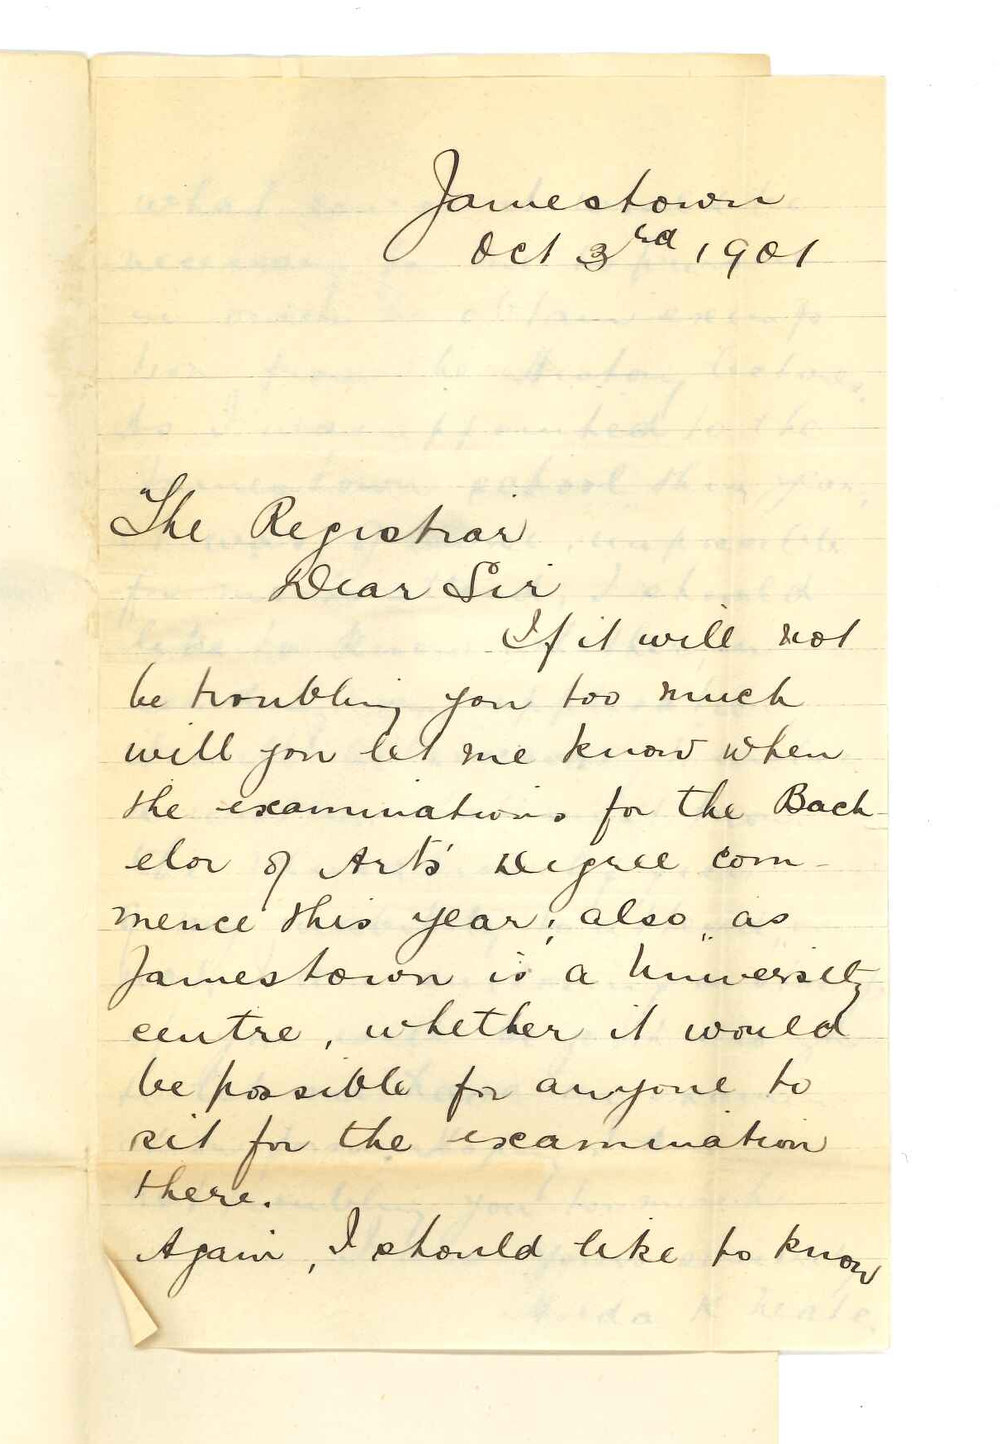 Jamestown
Oct 3rd 1901
The Registrar
Dear Sir
If it will not
be troubling you too much
will you let me know when
the examinations for the Bach-
elor of Arts' Degree com-
mence this year; also, as
Jamestown is a University
centre, whether it would
be possible for anyone to
sit for the examination
there.
Again, I should like to know